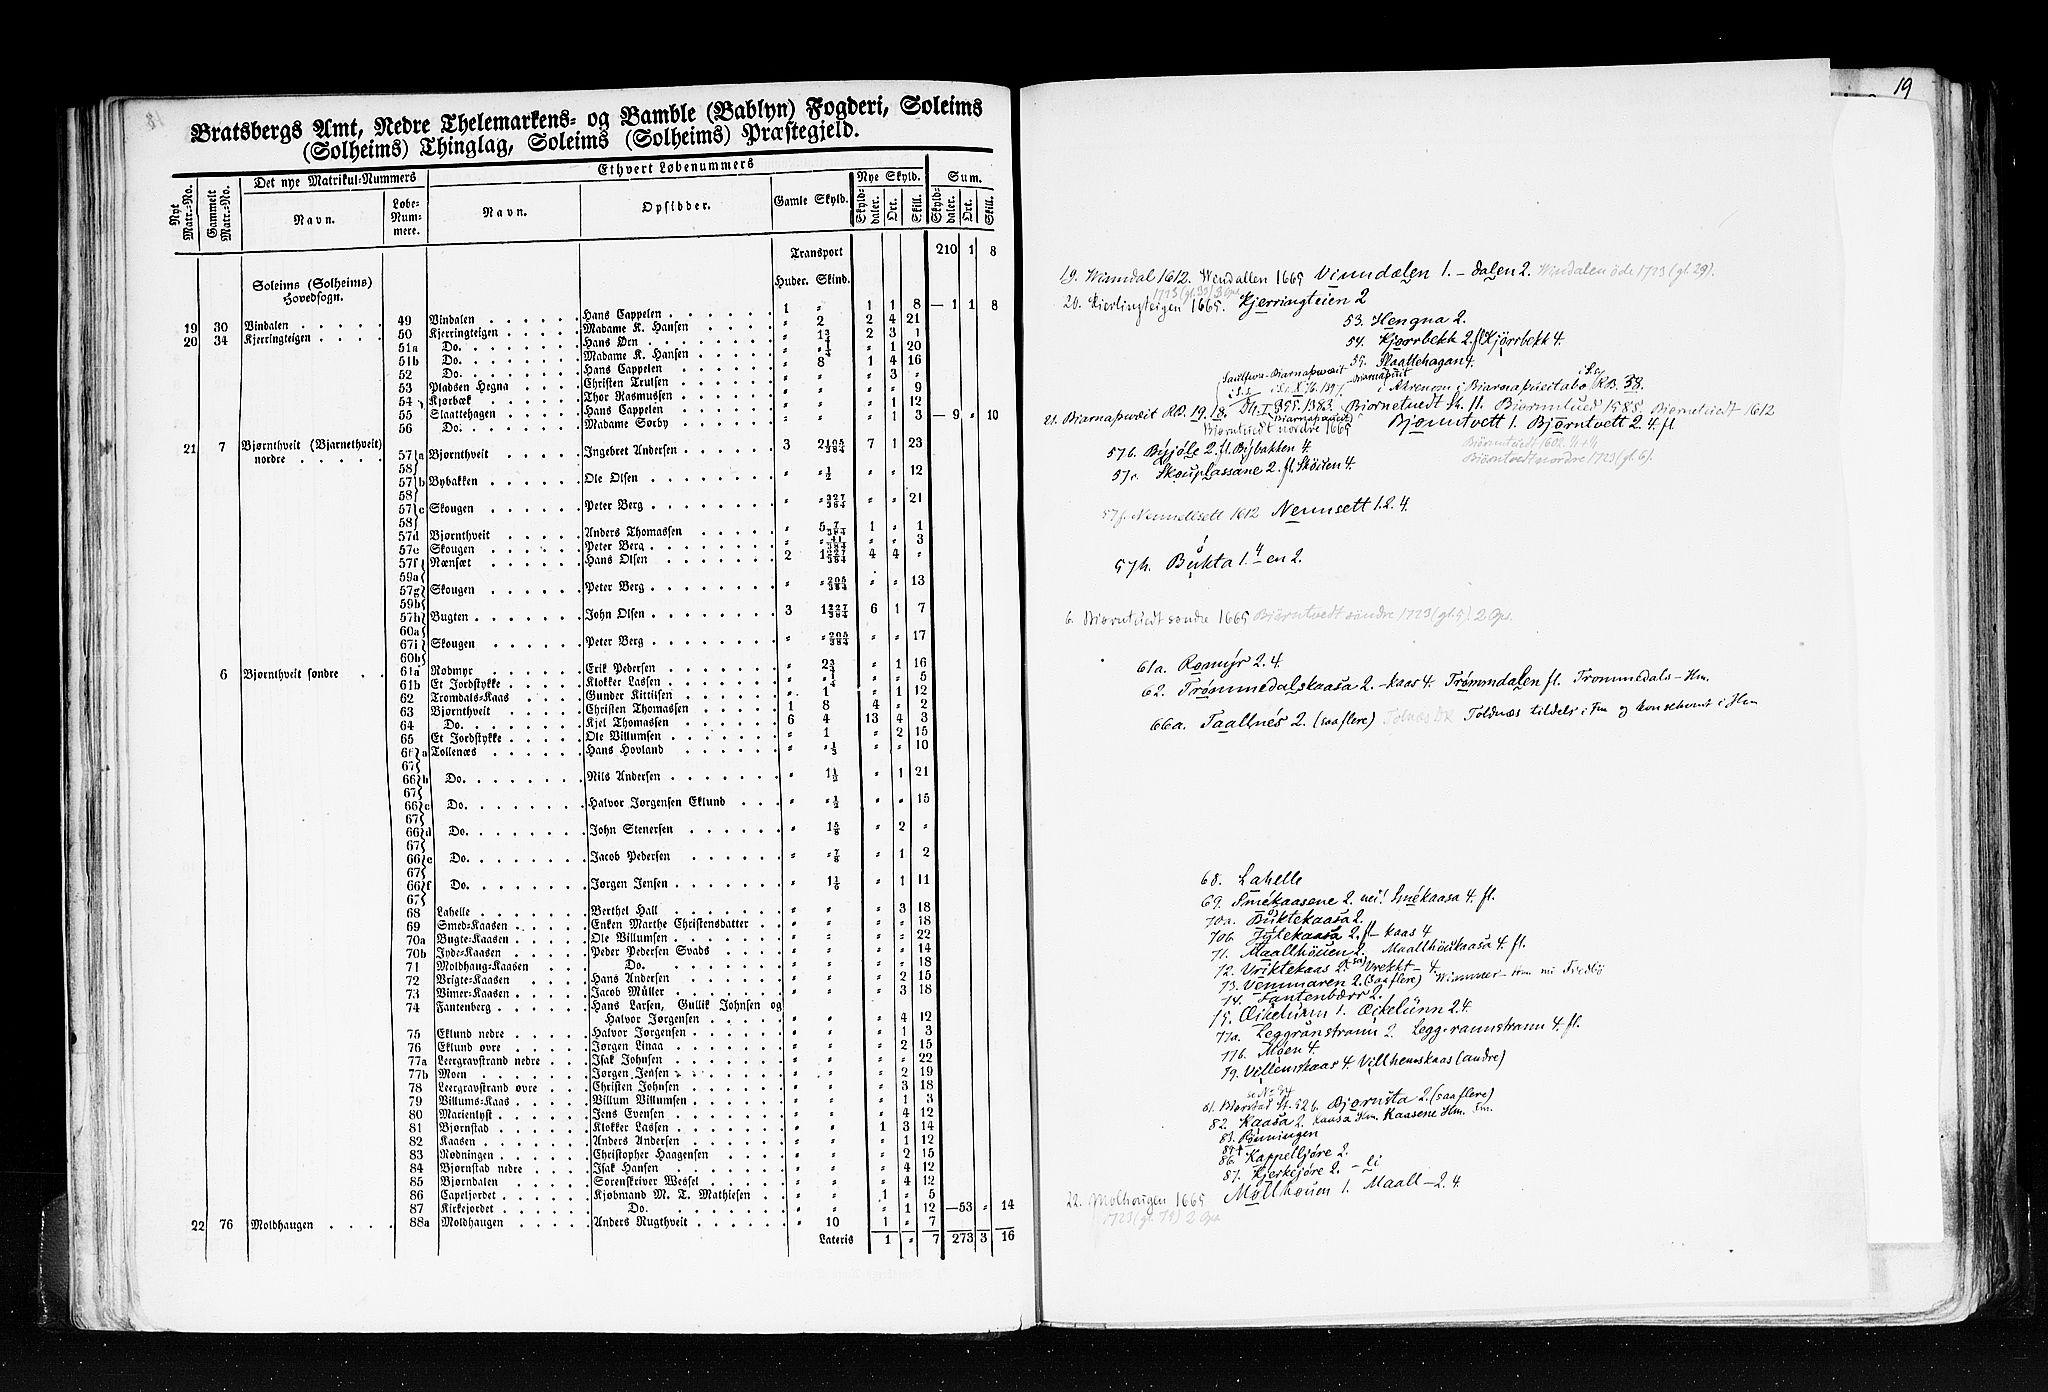 Bratsbergs Amt, Nedre Thelemarkens- og Bamble (Bablyn) Fogderi, Soleims
(Solheims) Thinglag, Soleims (Solheims) Præstegjeld.
Nye Matr.-No.
Gammelt Matr.-No.
Det nye Matrikul-Nummers
Navn.
Løbe-Nummere.
Ethvert Løbenummers
Navn.
Opsidder.
Gamle Skyld.
Nye Skyld.
Skylddaler. Ort. Skill.
Sum.
Skylddaler. Ort. Skill.
Transport 210 1 8
Soleims (Solheims) Hovedsogn.
Huder. Skind.
19 30 Vindalen 49 Vindalen Hans Cappelen 1 " 1 1 8 — 1 1 8
20 34 Kjerringteigen 50 Kjerringteigen Madame K. Hansen " 2 2 4 21
51a Do. Hans Ørn " 1 3/4 2 3 1
51b Do. Madame K. Hansen " 1/4 " 1 20
52 Do. Hans Cappelen " 8 1 4 16
53 Pladsen Hegna Christen Trulsen " " " 3 "
54 Kjorbæk Thor Rasmussen " " " " 9
55 Slaattehagen Hans Cappelen " " " 1 12
56 Do. Madame Sørby " " " 1 3 — 9 " 10
21 7 Bjørnthveit (Bjarnethveit) nordre 57 58 a Bjørnthveit Ingebret Andersen 3 2 105/384 7 1 23
57 58 b Bybakken Ole Olsen " " 1/2 " " 12
57 58 c Skougen Peter Berg " " 327/384 " " 21
57d Bjørnthveit Anders Thomassen " 5 7/384 1 " 1
57e Skougen Peter Berg " " 41/384 " " 3
57f 59a Nænsæt Hans Olsen 2 1 327/384 4 4 "
57g 59b Skougen Peter Berg " " 205/384 " " 13
57h 60a Bugten John Olsen 3 1 227/384 6 1 7
67i 60b Skougen Peter Berg " " 205/384 " " 17
6 Bjørnthveit søndre 61a Rødmyr Erik Pedersen " 2 3/4 " 1 16
61b Et Jordstykke Klokker Lassen " " 1/4 " " 5
62 Tromdals-Kaas Gunder Kittilsen " 1 " 1 12
63 Bjørnthveit Christen Thomassen 1 8 4 " 2
64 Do. Kjel Thomassen 6 4 13 4 3
65 Et Jordstykke Ole Villumsen " 1 " 2 15
66 67 a Tollenæs Hans Hovland " " 1/3 " " 10
66 67 b Do. Nils Andersen " 1 1/2 " 1 21
66 67 c Do. Halvor Jørgensen Eklund " " 1/2 " " 15
66 67 d Do. John Stenersen " 1 5/8 " 2 "
66 67 e Do. Jacob Pedersen " " 7/8 " 1 2
66 67 f Do. Jørgen Jensen " 1 1/6 " 1 11
68 Lahelle Berthel Hall " " " 3 18
69 Smed-Kaasen Enken Marthe Christensdatter " " " " 18
70a Bugte-Kaasen Ole Villumsen " " " " 22
70b Jyde-Kaasen Peder Pedersen Svads " " " " 14
71 Moldhaug-Kaasen Do. " " " " 18
72 Vrigte-Kaasen Hans Andersen " " " 2 15
73 Vimer-Kaasen Jacob Müller " " " 3 18
74 Fantenberg Hans Larsen, Gullik Johnsen og
Halvor Jørgensen " " " 4 12
75 Eklund nedre Halvor Jørgensen " " " 1 3
76 Eklund øvre Jørgen Linaa " " " 2 15
77a Leergravstrand nedre Isak Johnsen " " " " 22
77b Moen Jørgen Jensen " " " 2 19
78 Leergravstrand øvre Christen Johnsen " " " 3 18
79 Villums-Kaas Villum Villumsen " " " 1 3
80 Marienlyst Jens Evensen " " " 4 12
81 Bjørnstad Klokker Lassen " " 1 3 14
82 Kaasen Anders Andersen " " " 1 12
83 Rødningen Christopher Haagensen " " " 2 15
84 Bjørnstad nedre Isak Hansen " " " 4 12
85 Bjørndalen Sorenskriver Wessel " " " 4 12
86 Capeljordet Kjøbmand M. T. Mathiesen " " 1 " 5
87 Kirkejordet Do. " " " 1 12 — 53 " 14
22 76 Moldhaugen 88a Moldhaugen Anders Rugthveit " 10 1 " 7
Lateris 1 " 7 273 3 16
19
19. Wimdal 1612. Wendallen 1665 Vinndælen 1. – dalen 2. Windalen öde 1723 (gl. 29).
1723 (gl. 33) 3 Ops
20. Kierlingteigen 1665. Kjerringteien 2
53. Hengna 2.
54. Kjorrbekk 2 fl Kjørrbekk 4.
55. Slaattehagan 4.
21. Biarnaþweit RB. 19. 18. Bjornetuedt St. 11. Biornntued 1585. Biornetuedt 1612
Biørntuedt nordre 1665 Bjønntvett 1. Bjørntvett 2. 4 fl.
Biørntuedt 1602
57b. Byjøle 2. fl. Bybakken 4. Biørntvedt nordre 1723 (gl. 6).
57c. Skouplassane 2. fl. Sköien 4.
57f. Nennelsett 1612 Nennsett 1. 2. 4.
57h. Bukta 1. 4 en 2.
6. Biørntuedt søndre 1665 Biörntvedt söndre 1723 (gl. 5) 2 Ops.
61a. Romyr 2. 4.
62. Trømmedalskaasa 2. – kaas 4. Trømmdalen fl. Trommedals – Hm.
66a. Taallnés 2. (saa flere) Tolnes DK Toldnæs tildels i Fm og konsekvent i Hm
68. Lahelle
69. Smékaasene 2. nei! Smékaasa 4. fl.
70a. Buktekaasa 2.
70b. Jytekaasa 2. fl – kaas 4
71. Maallhöuen 2. Maallhöukaasa 4. fl.
72. Vriktekaas 2. Vrekkt – 4.
73. Vemmaren 2. (saa flere) Wimmer –
74. Fantenbærr 2.
75. Œikelunn 1. Œikelunn 2. 4.
77a. Leggrånstrann 2. Legg-rannstrann 4. fl.
77b. Moen 4.
79. Villemskaas 4. Villhemskaas (andre)
se No 84
81. Biørstad St. 52 b. Bjørnsta 2. (saa flere)
82. Kaasa 2. Kaasa Hm. Kaasene Hm. Fm.
83. Rønningen
84
86. Kappelljøre 2.
87. Kjerkejøre 2. – li
22. Molhougen 1665 Mollhøuen 1. Maall – 2. 4.
1723 (gl. 75) 2 Ops